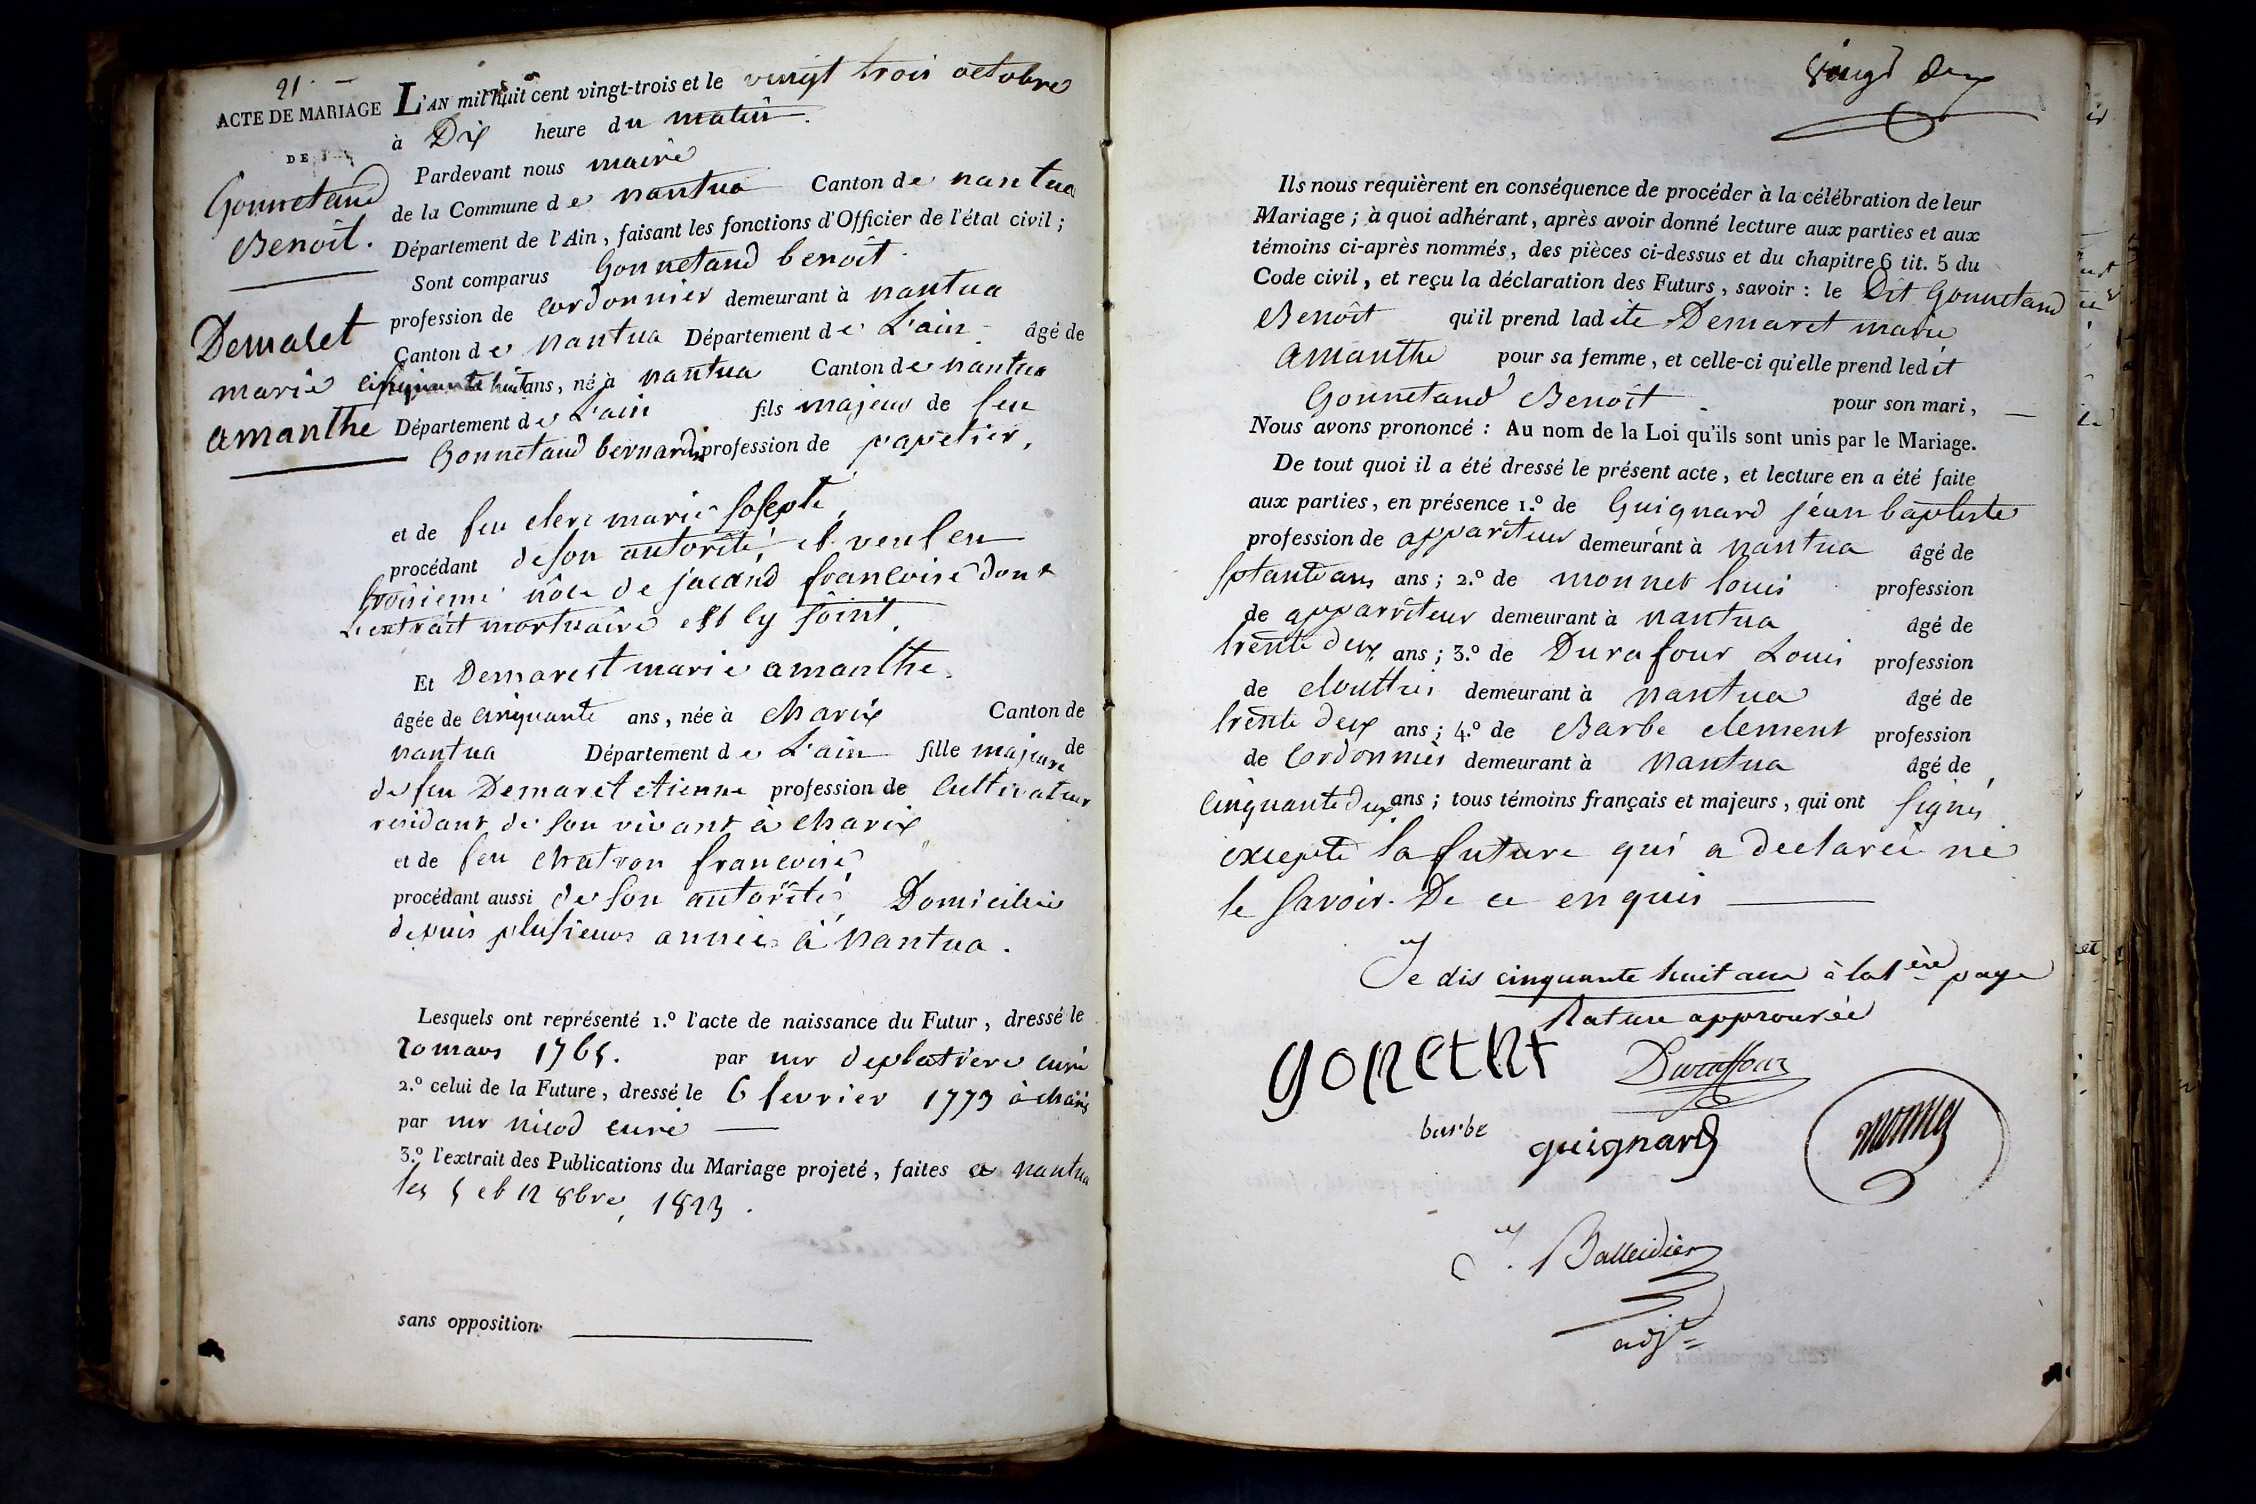 21.
ACTE DE MARIAGE
DE
Gonnetand
Benoît.
Demaret
marie
amanthe
L'AN mil huit cent vingt-trois et le vingt trois octobre
à Dix heure du matin.
Pardevant nous maire
de la Commune de nantua Canton de nantua
Département de l'Ain, faisant les fonctions d'Officier de l'état civil;
Sont comparus Gonnetand benoît.
profession de cordonnier demeurant à nantua
Canton de nantua Département de L'ain âgé de
cinquante huit ans, né à nantua Canton de nantua
Département de L'ain fils majeur de feu
Gonnetand bernard profession de papetier,
et de feu clerc marie Josepte,
procédant de son autorité, et veuf en
troisieme nôce de jacand francoise dont
L'extrait mortuaire est cy joint.
Et Demarest marie amanthe.
âgée de cinquante ans, née à charix Canton de
nantua Département de L'ain fille majeure de
de feu Demaret etienne profession de Cultivateur
residant de son vivant à charix
et de feu chatron francoise
procédant aussi de son autorité, Domiciliée
depuis plusieurs années à nantua.
Lesquels ont représenté 1.º l'acte de naissance du Futur, dressé le
20 mars 1765. par mr deplatiere curé
2.º celui de la Future, dressé le 6 fevrier 1773 à charix
par mr nicod curé
3.º l'extrait des Publications du Mariage projeté, faites a nantua
les 5 et 12 8bre, 1823.
sans opposition
vingt deux
Ils nous requièrent en conséquence de procéder à la célébration de leur
Mariage; à quoi adhérant, après avoir donné lecture aux parties et aux
témoins ci-après nommés, des pièces ci-dessus et du chapitre 6 tit. 5 du
Code civil, et reçu la déclaration des Futurs, savoir: le Dit Gonnetand
Benoît qu'il prend ladite Demaret marie
amanthe pour sa femme, et celle-ci qu'elle prend ledit
Gonnetand Benoît pour son mari,
Nous avons prononcé: Au nom de la Loi qu'ils sont unis par le Mariage.
De tout quoi il a été dressé le présent acte, et lecture en a été faite
aux parties, en présence 1.º de Guignard jean baptiste
profession de appariteur demeurant à nantua âgé de
septante ans ans; 2.º de monnet louis profession
de apparriteur demeurant à nantua âgé de
trente deux ans; 3.º de Durafour Louis profession
de clouttier demeurant à nantua âgé de
trente deux ans; 4.º de Barbe clement profession
de Cordonnier demeurant à nantua âgé de
cinquante deux ans; tous témoins français et majeurs, qui ont signés
excepté la future qui a declarée ne
le savoir. De ce enquis
Je dis cinquante huit ans à la 1ère page
Rature approuvée
Duraffour
barbe
guignard
monnet
J. Balleidier
adjt